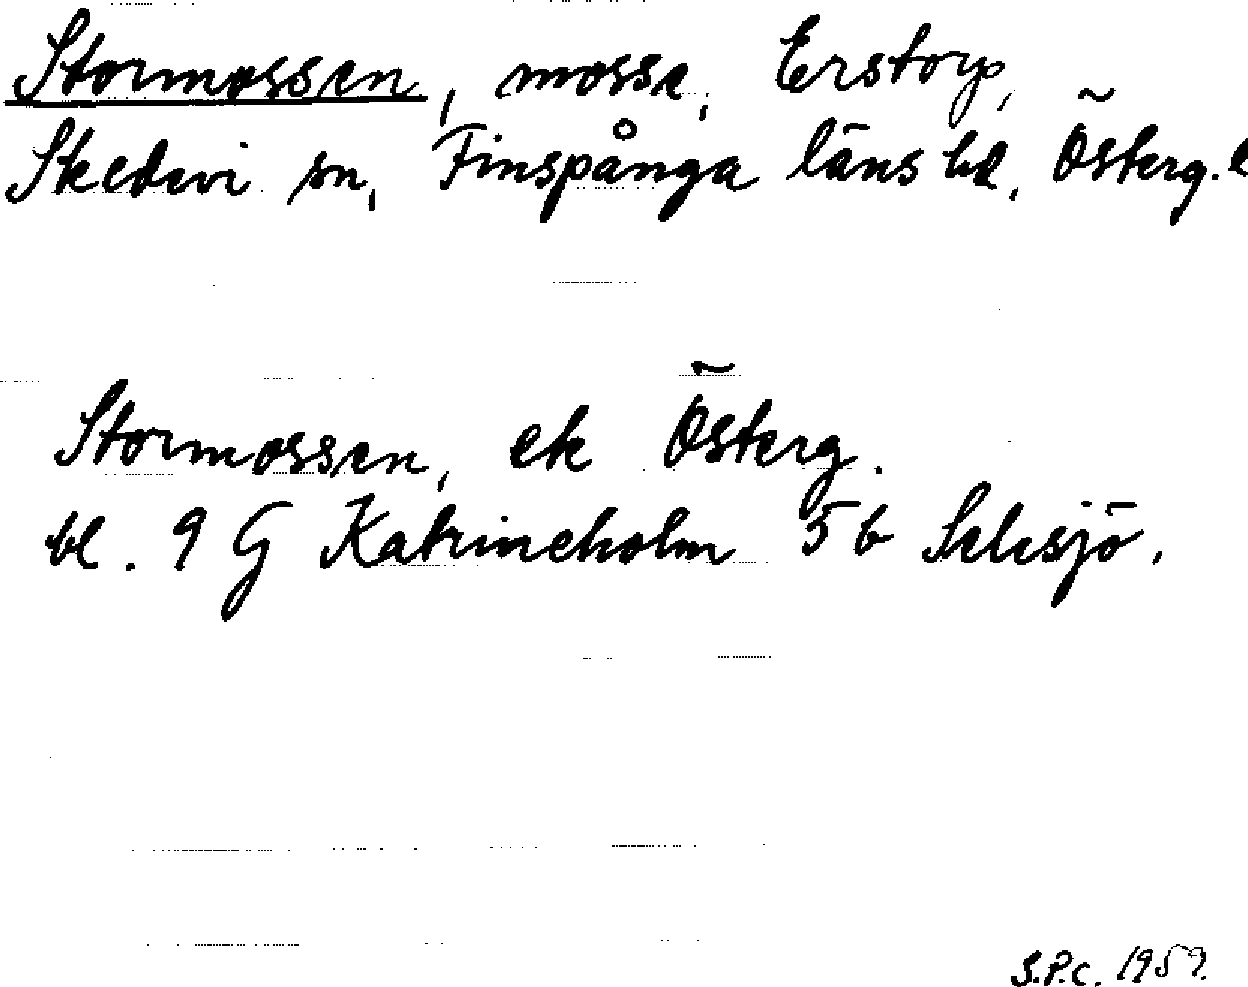 Stormossen, mosse, Erstorp,
Skedevi sn, Finspånga läns hd, Österg. l
Stormossen, ek Österg.
bl. 9 G Katrineholm 5 b
S.P.C. 1959.